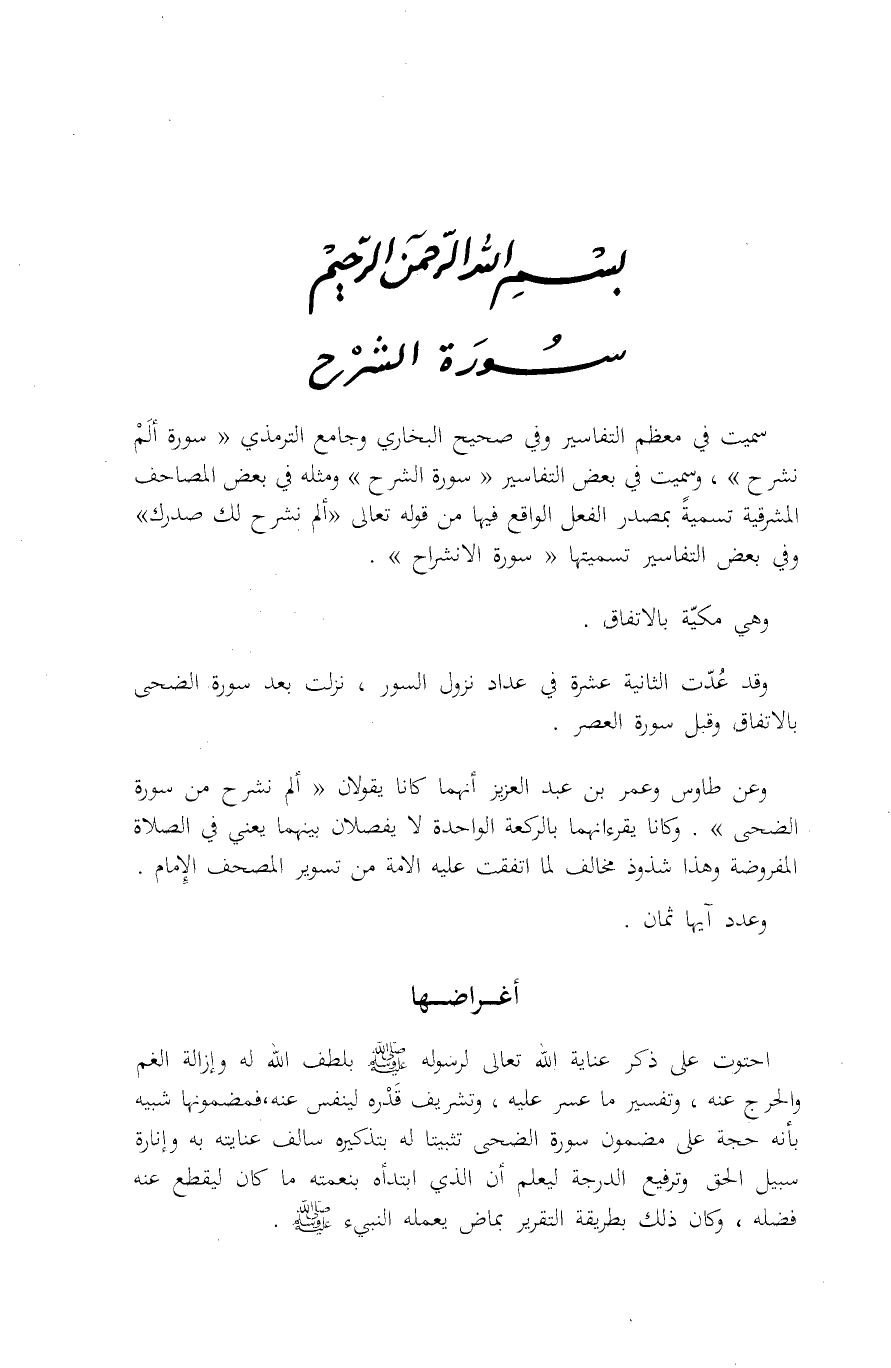 بِسْمِ اللهِ الرَّحْمَنِ الرَّحِيمِ
سُورَة الشَّرْح
سميت في معظم التفاسير وفي صحيح البخاري وجامع الترمذي « سورة ألَمْ
نشرح » ، وسميت في بعض التفاسير « سورة الشرح » ومثله في بعض المصاحف
المشرقية تسميةً بمصدر الفعل الواقع فيها من قوله تعالى «ألم نشرح لك صدرك»
وفي بعض التفاسير تسميتها « سورة الانشراح » .
وهي مكيّة بالاتفاق .
وقد عُدّت الثانية عشرة في عداد نزول السور ، نزلت بعد سورة الضحى
بالاتفاق وقبل سورة العصر .
وعن طاوس وعمر بن عبد العزيز أنهما كانا يقولان « ألم نشرح من سورة
الضحى » . وكانا يقرءانهما بالركعة الواحدة لا يفصلان بينهما يعني في الصلاة
المفروضة وهذا شذوذ مخالف لما اتفقت عليه الامة من تسوير المصحف الإمام .
وعدد آيها ثمان .
أغـراضـها
احتوت على ذكر عناية الله تعالى لرسوله ﷺ بلطف الله له وإزالة الغم
والحرج عنه ، وتفسير ما عسر عليه ، وتشريف قَدْره لينفس عنه،فمضمونها شبيه
بأنه حجة على مضمون سورة الضحى تثبيتا له بتذكيره سالف عنايته به وإنارة
سبيل الحق وترفيع الدرجة ليعلم أن الذي ابتدأه بنعمته ما كان ليقطع عنه
فضله ، وكان ذلك بطريقة التقرير بماض يعمله النبيء ﷺ .